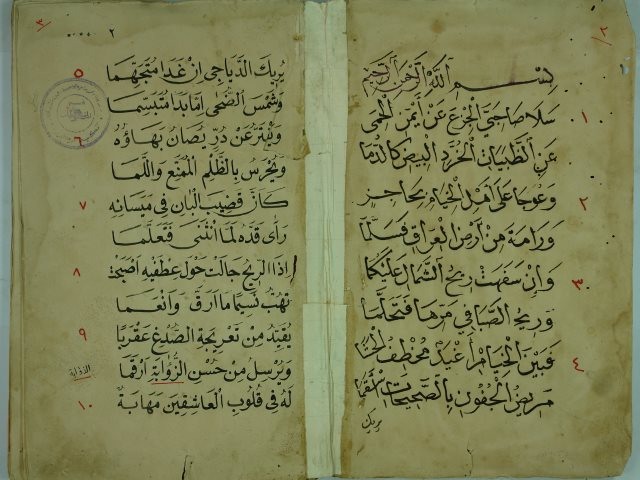 ٢
بِسْمِ اللَّهِ الرَّحْمَنِ الرَّحِيمِ
١ سَلَا صَاحِبَيَّ الْجِزْعَ عَنْ أَيْمَنِ الْحِمَى
عَنِ الظَّبَيَاتِ الْخُرَّدِ الْبِيضِ كَالدُّمَا
٢ وَعُوجَا عَلَى أَهْلِ الْخِيَامِ بِحَاجِرٍ
وَرَامَةَ مِنْ أَرْضِ الْعِرَاقِ فَسَلِّمَا
٣ وَإِنْ سَفَهَتْ رِيحُ الشَّمَالِ عَلَيْكُمَا
وَرِيحُ الصَّبَا فِي مَرِّهَا فَتَحَلَّمَا
٤ فَبَيْنَ الْخِيَامِ أَغْيَدٌ مُخْطَفُ الْحَشَا
مَرِيضُ الْجُفُونِ بِالصَّحِيحَاتِ أَسْقَمَا
يريك
٣
٢
٥ يُرِيكَ الدَّيَاجِي إِنْ غَدَا مُتَجَهِّمًا
وَشَمْسَ الضُّحَى إِمَّا بَدَا مُتَبَسِّمَا
٦ وَيَفْتَرُّ عَنْ دُرٍّ يُصَانُ بَهَاؤُهُ
وَيُحْرَسُ بِالظَّلْمِ الْمُمَنَّعِ وَاللَّمَا
٧ كَأَنَّ قَضِيبَ الْبَانِ فِي مَيَسَانِهِ
رَأَى قَدَّهُ لَمَّا انْثَنَى فَتَعَلَّمَا
٨ إِذَا الرِّيحُ جَالَتْ حَوْلَ عِطْفَيْهِ أَصْبَحَتْ
تَهُبُّ نَسِيمًا مَا أَرَقَّ وَأَنْعَمَا
٩ يُقَيِّدُ مِنْ تَعْرِيجَةِ الصُّدْغِ عَقْرَبًا
وَيُرْسِلُ مِنْ حُسْنِ الزُّؤَابَةِ أَرْقَمَا
الذؤابة
١٠ لَهُ فِي قُلُوبِ الْعَاشِقِينَ مَهَابَةٌ